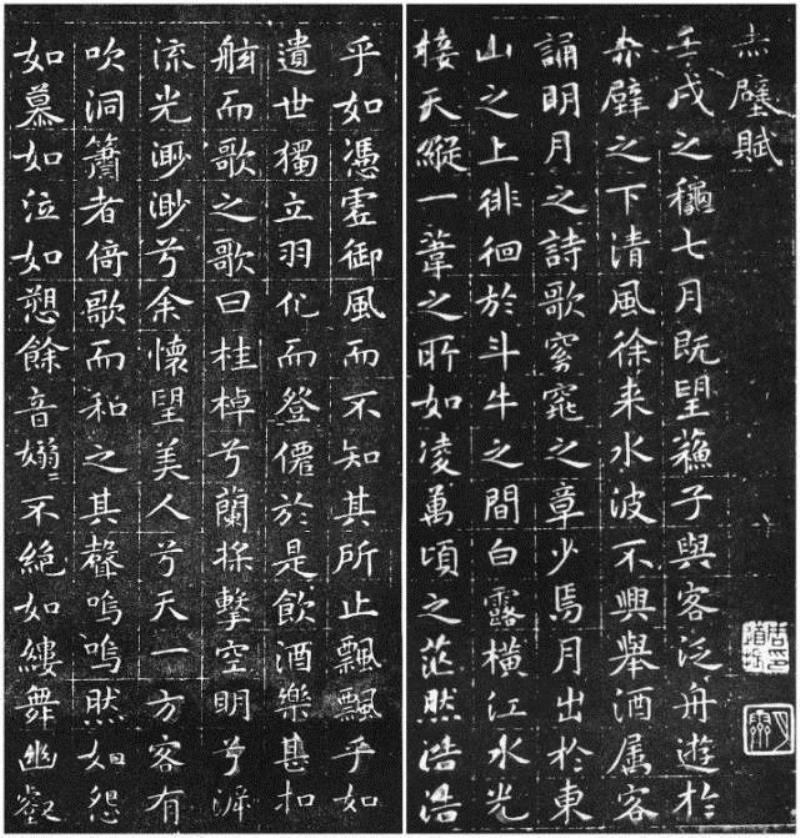 赤壁賦
壬戌之龝七月既望蘓子與客泛舟遊於
赤壁之下清風徐来水波不興舉酒属客
誦明月之詩歌窈窕之章少焉月出於東
山之上徘徊於斗牛之間白露橫江水光
接天縱一葦之所如凌萬頃之茫然浩浩
乎如憑虛御風而不知其所止飄飄乎如
遺世獨立羽化而登僊於是飲酒樂甚扣
舷而歌之歌曰桂棹兮蘭槳擊空明兮泝
流光渺渺兮余懷望美人兮天一方客有
吹洞簫者倚歌而和之其聲嗚嗚然如怨
如慕如泣如愬餘音嫋〻不絕如縷舞幽壑